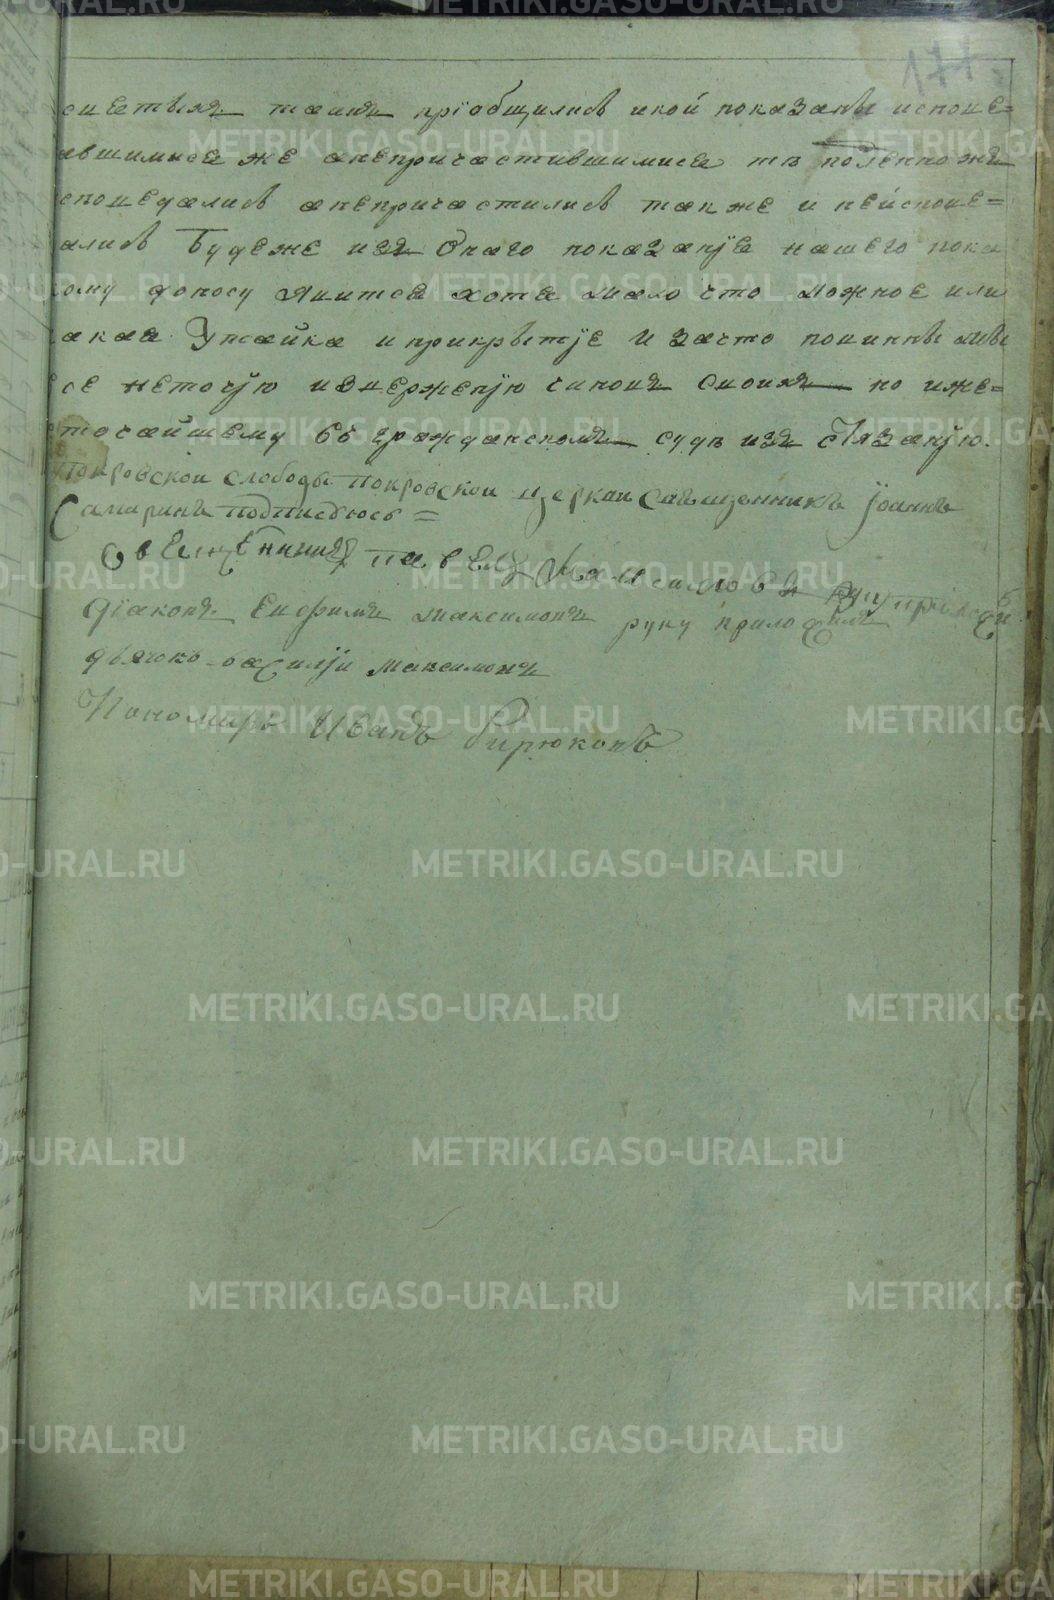 METRIKI.GASO-URAL.RU
177
светыхъ таинъ прiобщились и кои показаны испове=
авшимися же анепричастившимися тѣ
споведались анепричастились также и неиспове=
ались буде же изъ онаго показанïя нашего пока
ому доносу явится хотя мало что ложное или
акая утайка и прикрытïе и зачто повинны мы
се неточïю извержепïю чиновъ своихъ но иже=
точайшему въ гражданскомъ судѣ изъ
Покровской слободы Покровской церкви Священникъ Iоаннъ
Самаринъ подписуюсь =
Священникъ павелъ Максимовъ руку приложи
Дïаконъ Ефимъ Максимовъ руку приложилъ
дьячокъ василïи Максимовъ
Пономарь Иванъ Бирюковъ